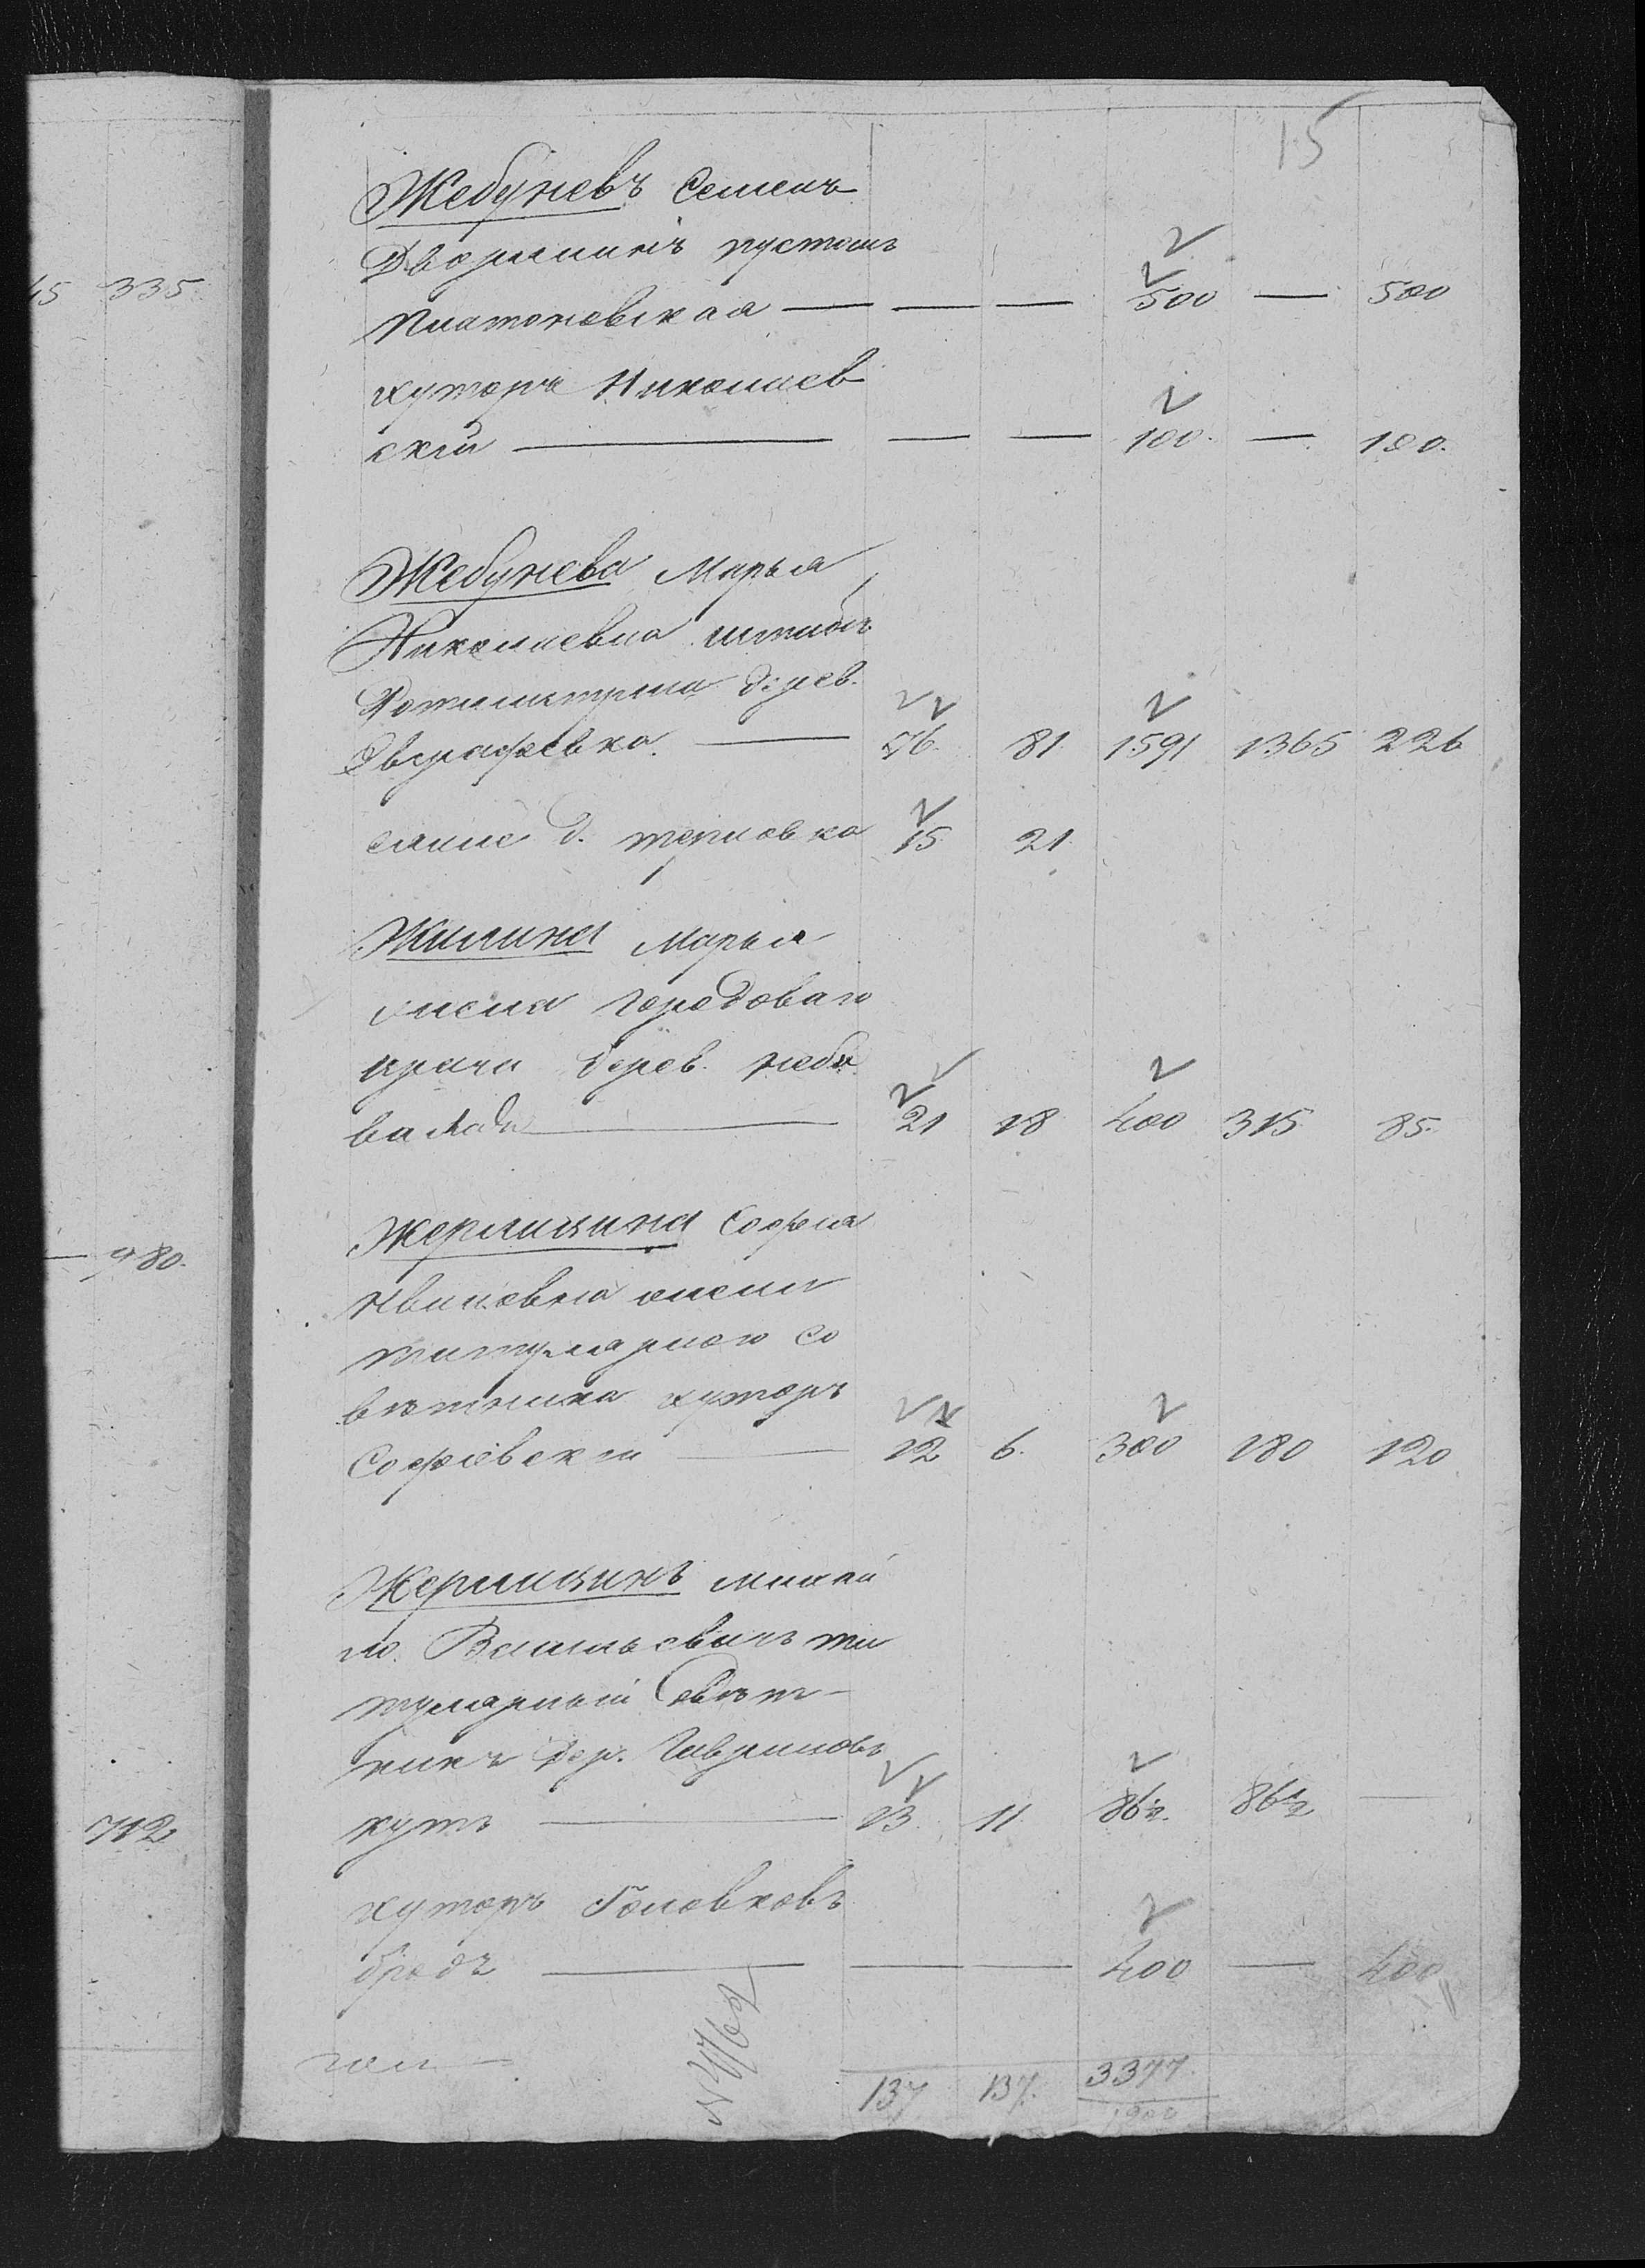 15
45 335
Жебуневъ Семенъ
Дворянинъ пустошь
Платоновская — — — 500 — 500
хуторъ Николаев
скій — — — 100. — 100.
Жебунева Марья
Николаевна штабъ
Ротмистрша дерев.
Евграфовка. — 76. 81. 1591 1365 226
ея же д. терновка 15. 21.
Жилина Марья
жена городоваго
врача дерев. небы
21 18 400 315 85.
Жермицина Софья
— 980.
Ивановна жена
титулярнаго со
вѣтника хуторъ
Софіевскій — 12 6. 300 180 120
Жермицинъ михаи
ло. Васильевичъ ти
тулярный Совѣт-
никъ дер. Гавриловъ
712
кутъ — 13. 11. 86½. 86½ —
хуторъ Головковъ
бродъ — — — 400 — 400
137 137. 3377.
1900